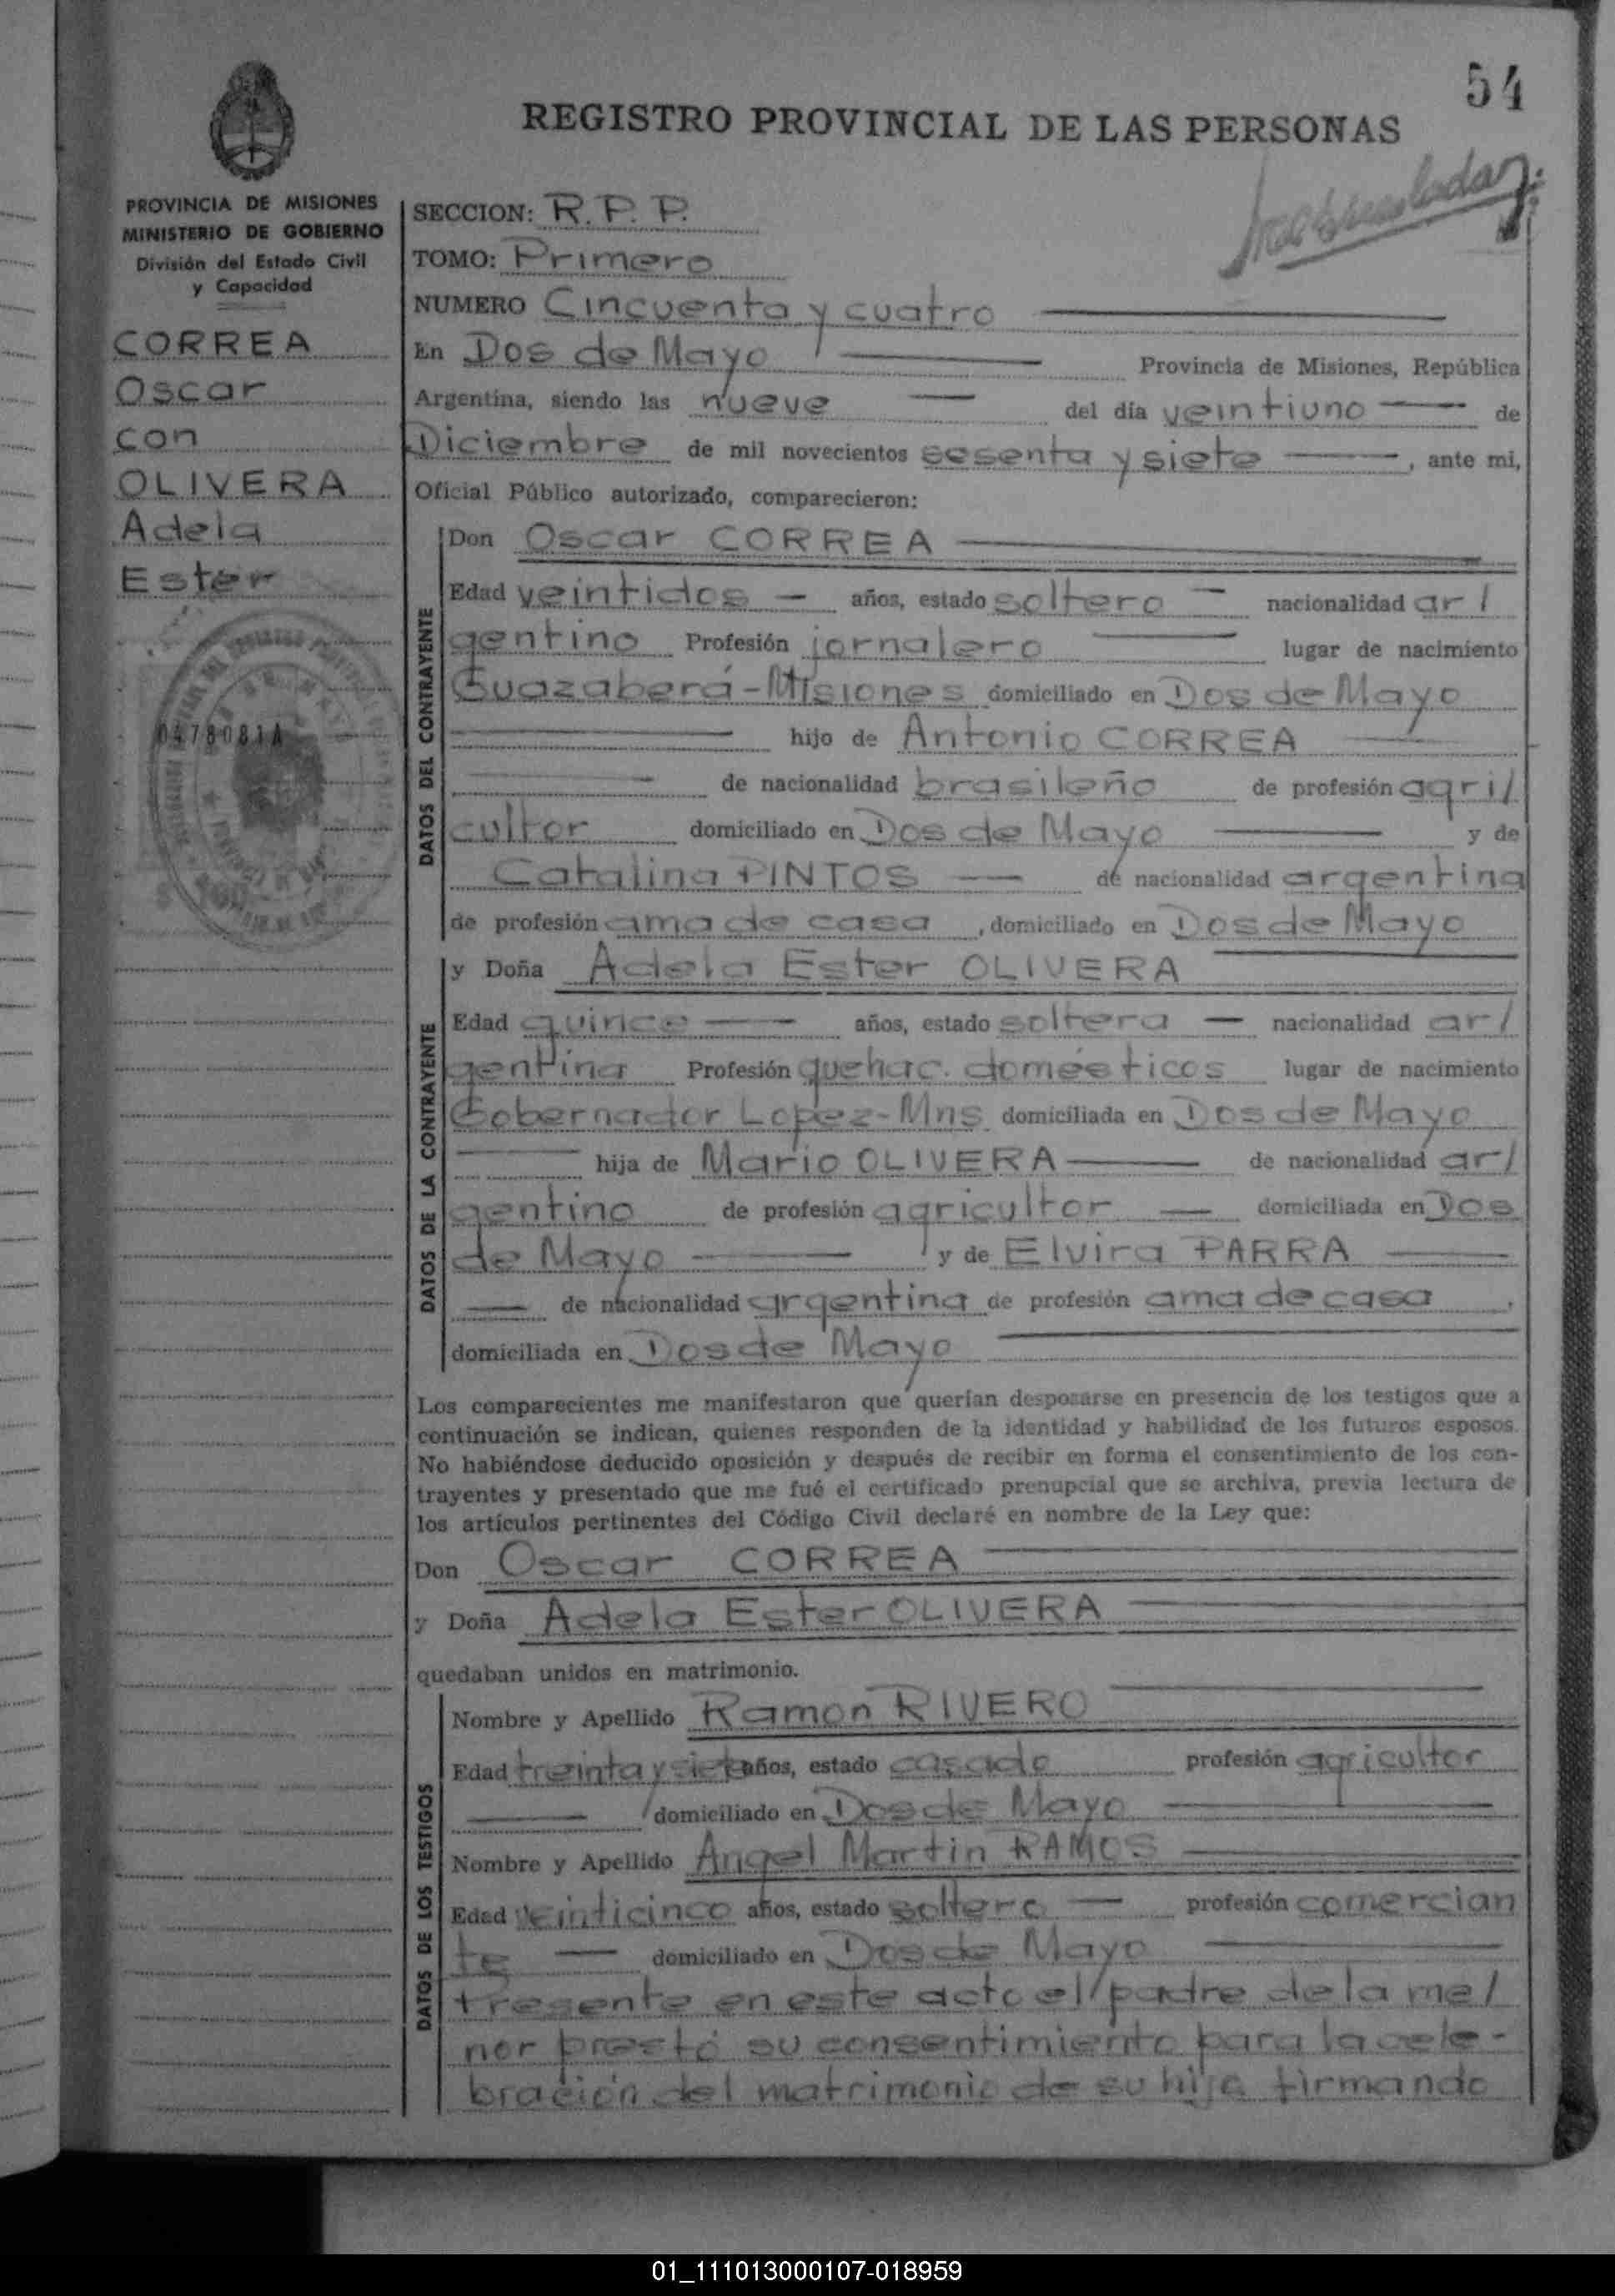 54
REGISTRO PROVINCIAL DE LAS PERSONAS
PROVINCIA DE MISIONES
MINISTERIO DE GOBIERNO
División del Estado Civil
y Capacidad
CORREA
Oscar
con
OLIVERA
Adela
Ester
SECCION: R. P. P.
TOMO: Primero
NUMERO Cincuenta y cuatro
En Dos de Mayo Provincia de Misiones, República
Argentina, siendo las nueve del día veintiuno de
Diciembre de mil novecientos sesenta y siete, ante mi,
Oficial Público autorizado, comparecieron:
DATOS DEL CONTRAYENTE
Don Oscar CORREA
Edad veintidos años, estado soltero nacionalidad ar/
gentino Profesión jornalero lugar de nacimiento
Guazaberá-Misiones domiciliado en Dos de Mayo
hijo de Antonio CORREA
de nacionalidad brasileño de profesión agri/
cultor domiciliado en Dos de Mayo y de
Catalina PINTOS de nacionalidad argentina
de profesión ama de casa, domiciliado en Dos de Mayo
DATOS DE LA CONTRAYENTE
y Doña Adela Ester OLIVERA
Edad quince años, estado soltera nacionalidad ar/
gentina Profesión quehac. domésticos lugar de nacimiento
Gobernador Lopez-Mns domiciliada en Dos de Mayo
hija de Mario OLIVERA de nacionalidad ar/
gentino de profesión agricultor domiciliada en Dos
de Mayo y de Elvira PARRA
de nacionalidad argentina de profesión ama de casa,
domiciliada en Dos de Mayo
Los comparecientes me manifestaron que querían desposarse en presencia de los testigos que a
continuación se indican, quienes responden de la identidad y habilidad de los futuros esposos.
No habiéndose deducido oposición y después de recibir en forma el consentimiento de los con-
trayentes y presentado que me fué el certificado prenupcial que se archiva, previa lectura de
los artículos pertinentes del Código Civil declaré en nombre de la Ley que:
Don Oscar CORREA
y Doña Adela Ester OLIVERA
quedaban unidos en matrimonio.
DATOS DE LOS TESTIGOS
Nombre y Apellido Ramon RIVERO
Edad treinta y siete años, estado casado profesión agricultor
domiciliado en Dos de Mayo
Nombre y Apellido Angel Martin RAMOS
Edad veinticinco años, estado soltero profesión comercian
te domiciliado en Dos de Mayo
Presente en este acto el padre de la me/
nor prestó su consentimiento para la cele-
bración del matrimonio de su hija firmando
01_111013000107-018959